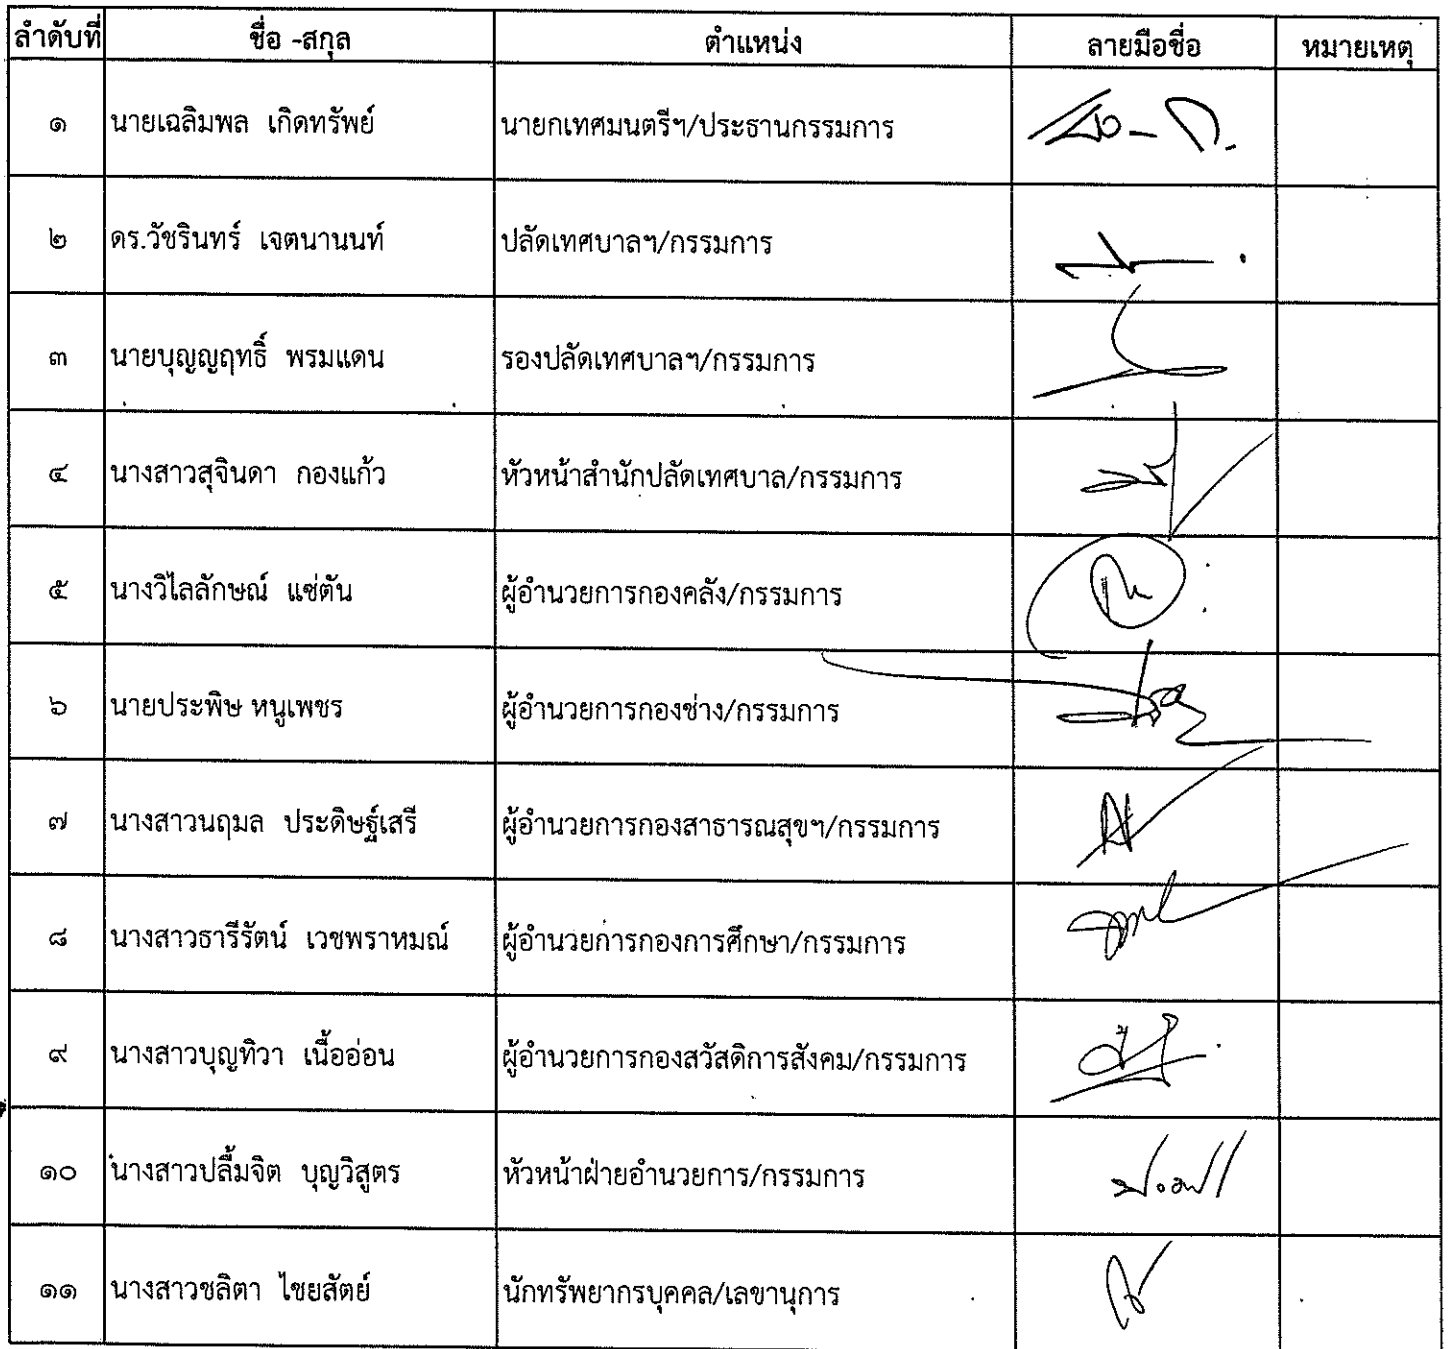 ลำดับที่ ชื่อ -สกุล ตำแหน่ง ลายมือชื่อ หมายเหตุ
๑ นายเฉลิมพล เกิดทรัพย์ นายกเทศมนตรีฯ/ประธานกรรมการ
๒ ดร.วัชรินทร์ เจตนานนท์ ปลัดเทศบาลฯ/กรรมการ
๓ นายบุญญฤทธิ์ พรมแดน รองปลัดเทศบาลฯ/กรรมการ
๔ นางสาวสุจินดา กองแก้ว หัวหน้าสำนักปลัดเทศบาล/กรรมการ
๕ นางวิไลลักษณ์ แซ่ตัน ผู้อำนวยการกองคลัง/กรรมการ
๖ นายประพิษ หนูเพชร ผู้อำนวยการกองช่าง/กรรมการ
๗ นางสาวนฤมล ประดิษฐ์เสรี ผู้อำนวยการกองสาธารณสุขฯ/กรรมการ
๘ นางสาวธารีรัตน์ เวชพราหมณ์ ผู้อำนวยการกองการศึกษา/กรรมการ
๙ นางสาวบุญทิวา เนื้ออ่อน ผู้อำนวยการกองสวัสดิการสังคม/กรรมการ
๑๐ นางสาวปลื้มจิต บุญวิสูตร หัวหน้าฝ่ายอำนวยการ/กรรมการ
๑๑ นางสาวชลิตา ไชยสัตย์ นักทรัพยากรบุคคล/เลขานุการ